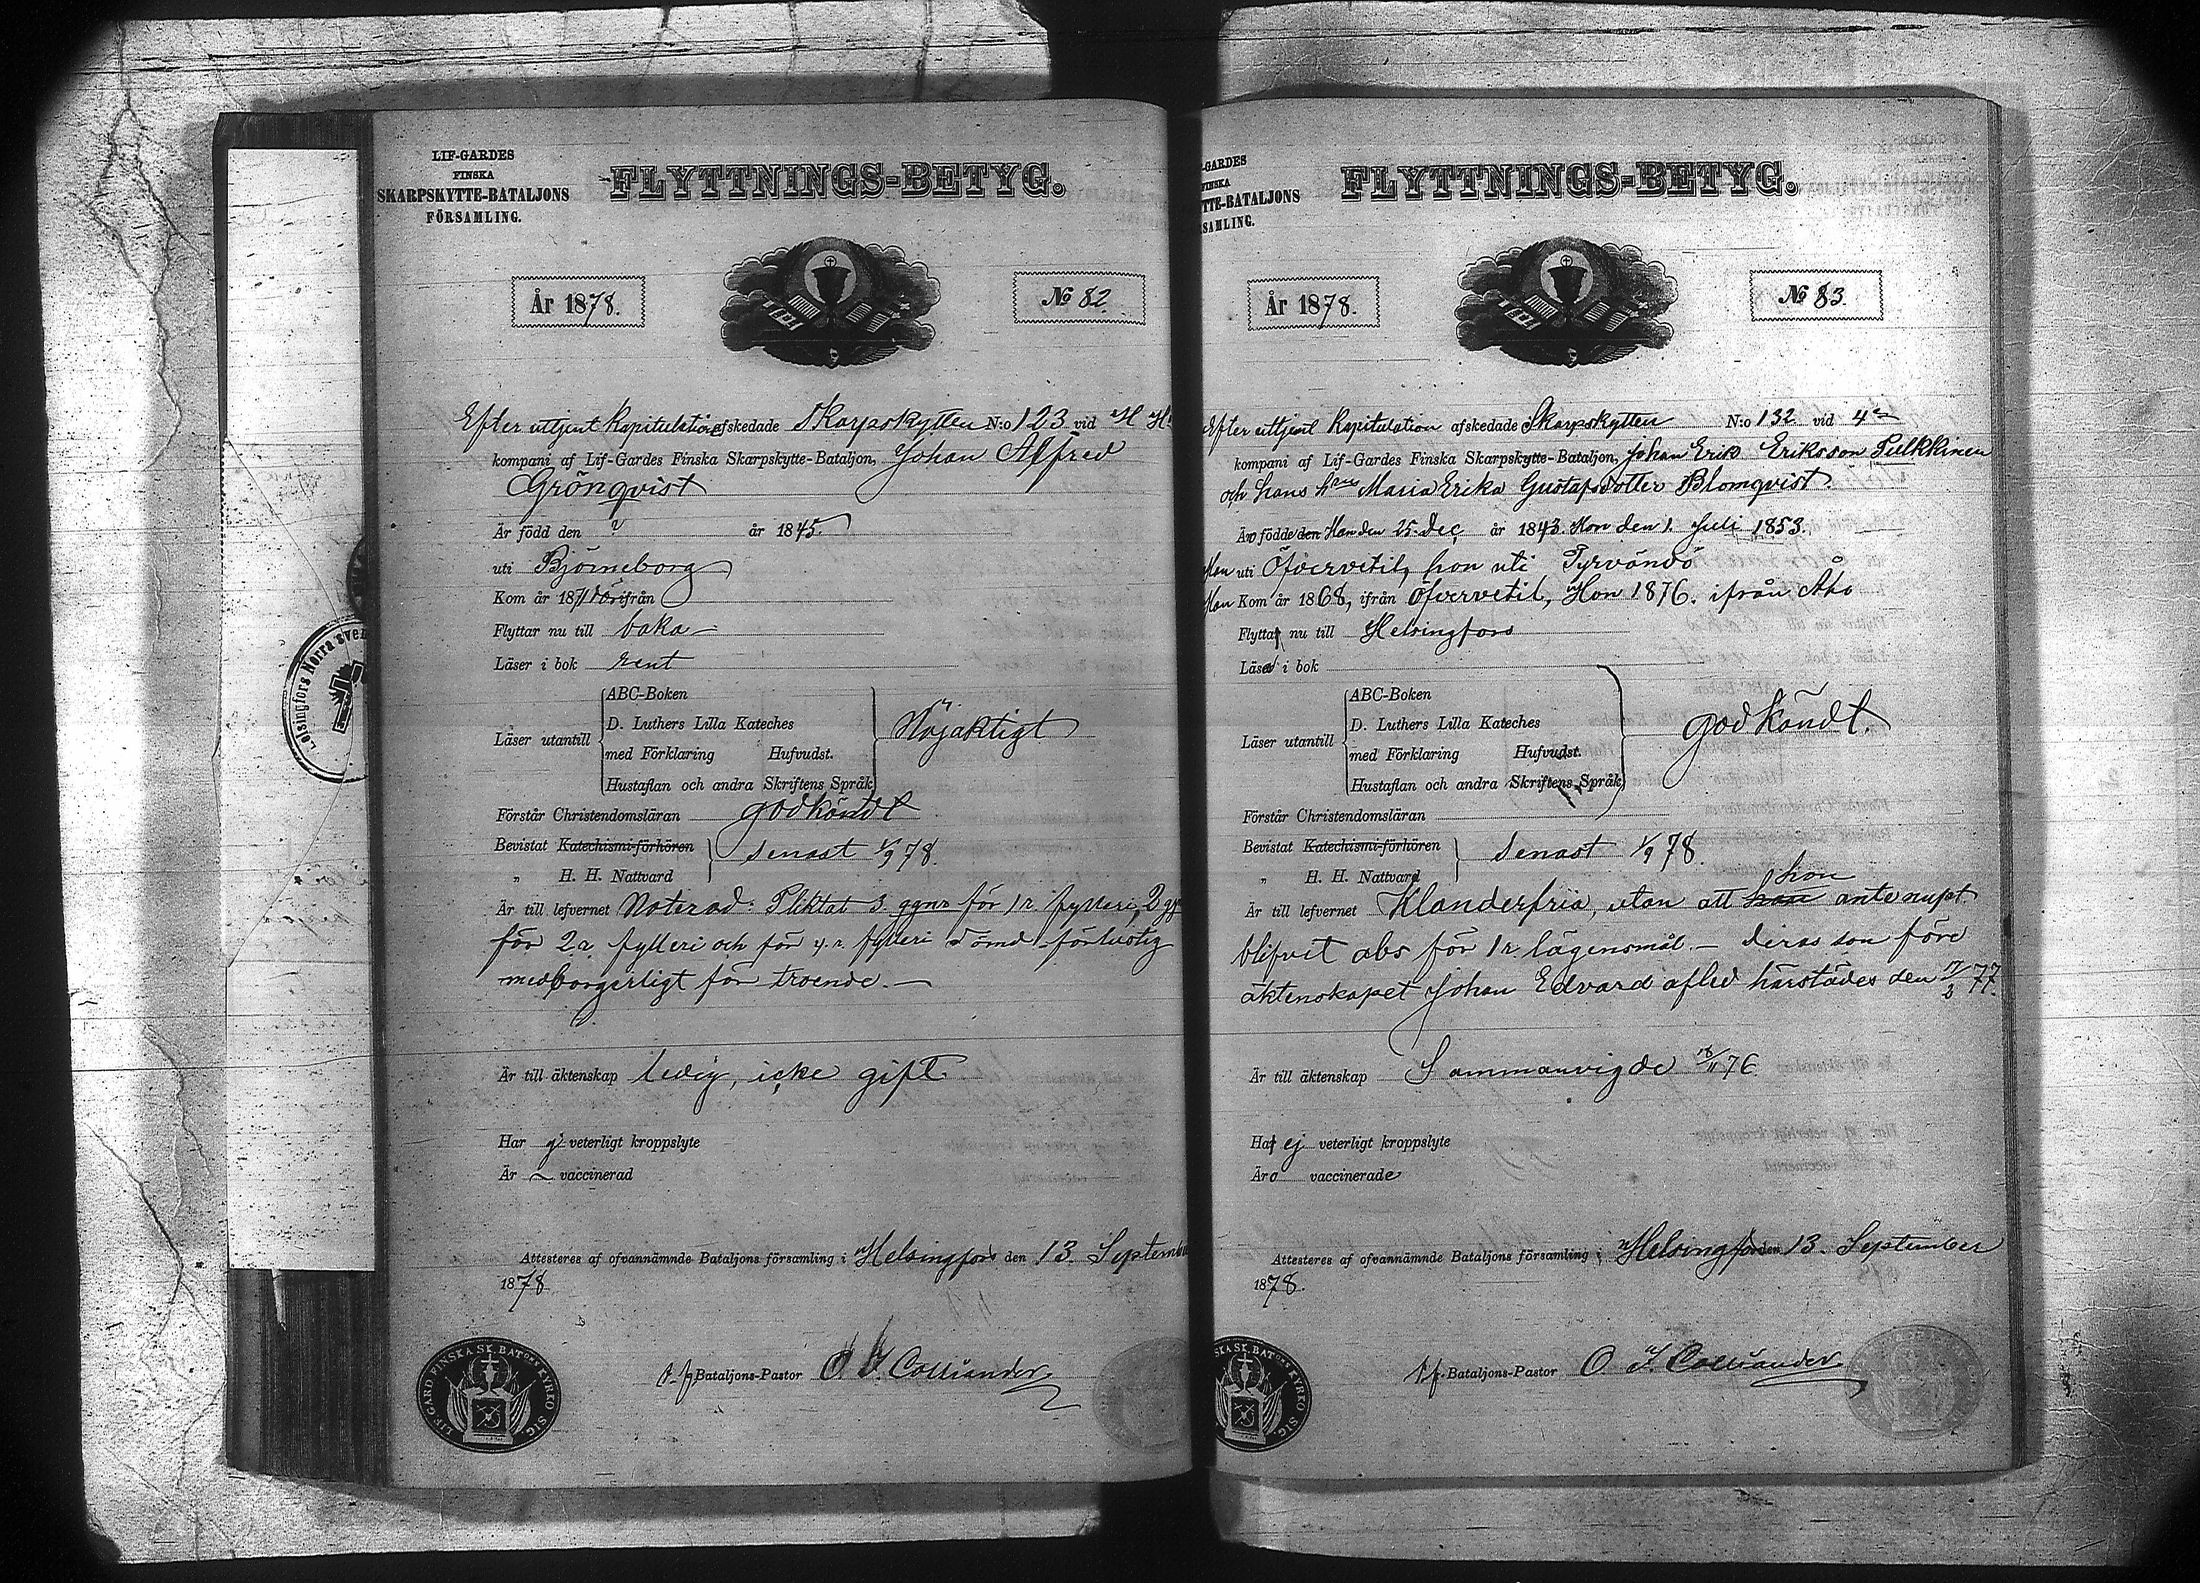 LIF-GARDES
FINSKA
SKARPSKYTTE-BATALJONS
FÖRSAMLING.
FLYTTNINGS-BETYG.
År 1878.
№ 82
Efter uttjent Kapitulation afskedade Skarpskytten N:o 123 vid
kompani af Lif-Gardes Finska Skarpskytte-Bataljon, Johan Alfred
Grönqvist
Är född den ? år 1845.
uti Björneborg
Kom år 1871 ifrån
Flyttar nu till
Läser i bok rent
Läser utantill
ABC-Boken
D. Luthers Lilla Kateches
med Förklaring Hufvudst.
Hustaflan och andra Skriftens Språk
Nöjaktigt
Förstår Christendomsläran godkändt
Bevistat Katechismi-förhören
„ H. H. Nattvard
senast 1/9 78.
Är till lefvernet Noterad: Pliktat 3 ggnr för 1 r. fylleri, 2 gg
för 2a fylleri och för 4. r. fylleri dömd förlustig
medborgerligt förtroende. —
Är till äktenskap ledig, icke gift
Har ej veterligt kroppslyte
Är vaccinerad
Attesteres af ofvannämnde Bataljons församling i Helsingfors den 13. Septembe
1878
Bataljons-Pastor O. F. Colliander
LIF.GARD.FINSKA SK.BATONS KYRKO SIG.
Helsingfors Norra sven
-GARDES
FINSKA
TTE-BATALJONS
SAMLING.
FLYTTNINGS-BETYG.
År 1878.
№ 83.
Efter uttjent Kapitulation afskedade Skarpskytten N:o 132 vid 4de
kompani af Lif-Gardes Finska Skarpskytte-Bataljon, Johan Erik Eriksson Pulkkinen
och hans hu Maria Erika Gustafsdotter Blomqvist.
Äro födde den Han den 25. Dec. år 1843. Hon den 1. Juli 1853.
Han uti Öfvervetil, hon uti Tyrvändö
Han Kom år 1868, ifrån Öfvervetil, Hon 1876. ifrån Åbo
Flytta nu till Helsingfors
Läsa i bok
Läser utantill
ABC-Boken
D. Luthers Lilla Kateches
med Förklaring Hufvudst.
Hustaflan och andra Skriftens Språk
godkändt.
Förstår Christendomsläran
Bevistat Katechismi-förhören
„ H. H. Nattvard
senast 1/9 78.
hon
Är till lefvernet Klanderfria, utan att han antenupt.
blifvit abs för 1 r. lägersmål. — Deras son före
äktenskapet Johan Edvard aflid härstädes den 77.
Är till äktenskap Sammanvigde 76
Ha ej veterligt kroppslyte
Äro vaccinerade
Attesteres af ofvannämnde Bataljons församling i Helsingfors den 13. September
1878.
Bataljons-Pastor O. F. Colliander
SKA SK.BATONS KYRKO SIG.